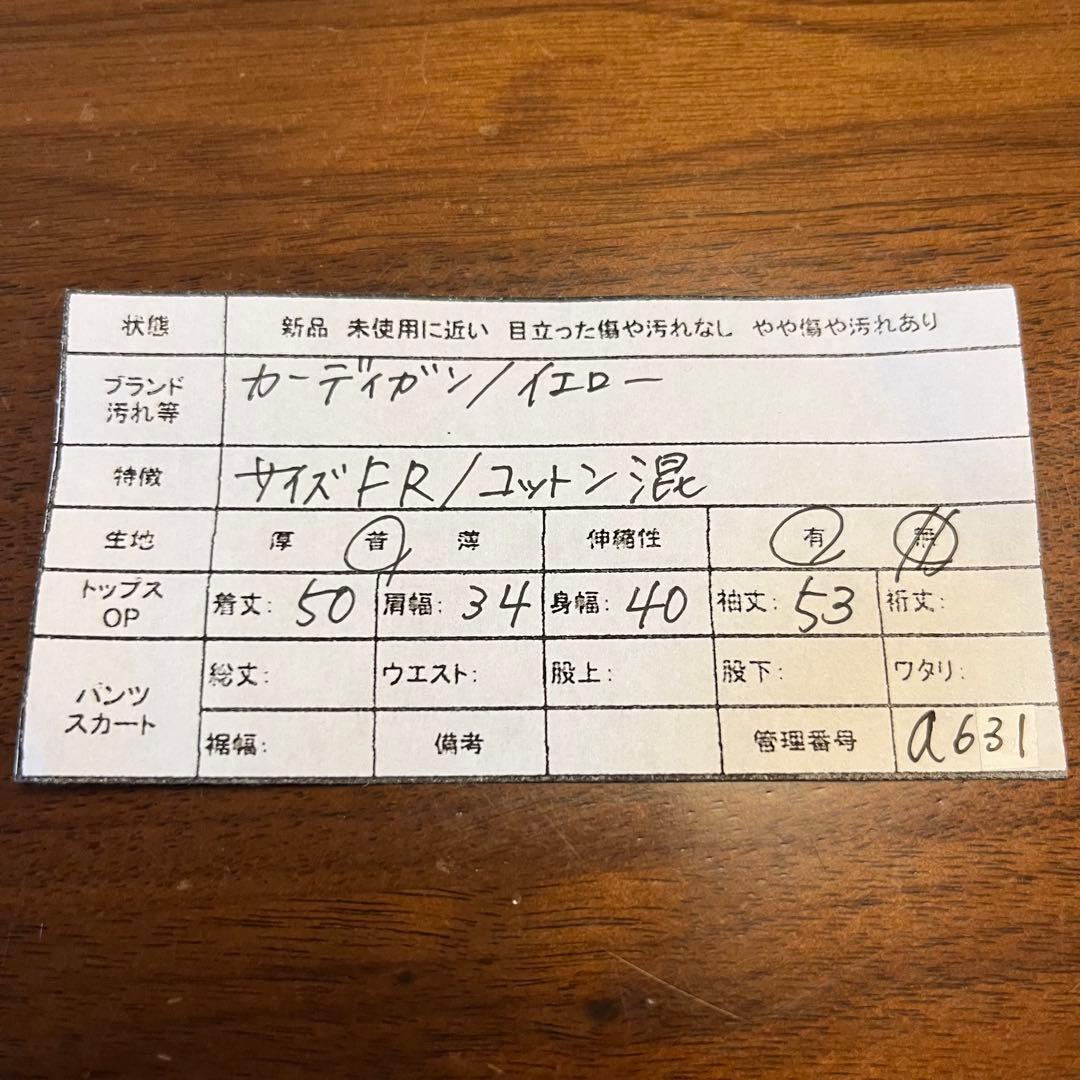 状態 新品 未使用に近い 目立った傷や汚れなし やや傷や汚れあり
ブランド
汚れ等
カーディガン/イエロー
特徴 サイズFR/コットン混
生地 厚 普 薄 伸縮性 有 無
トップス
OP
着丈: 50 肩幅: 34 身幅: 40 袖丈: 53 裄丈:
パンツ
スカート
総丈: ウエスト: 股上: 股下: ワタリ:
裾幅: 備考 管理番号 a631